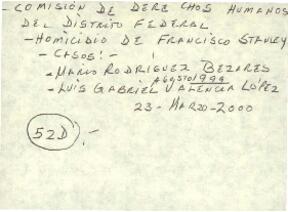 - COMISIÓN DE DERECHOS HUMANOS
DEL DISTRITO FEDERAL
- HOMICIDIO DE FRANCISCO STANLEY
- CASOS:-
- MARIO RODRIGUEZ BEZARES
AGOSTO 1999
- LUIS GABRIEL VALENCIA LÓPEZ
23-MARZO-2000
52D :-